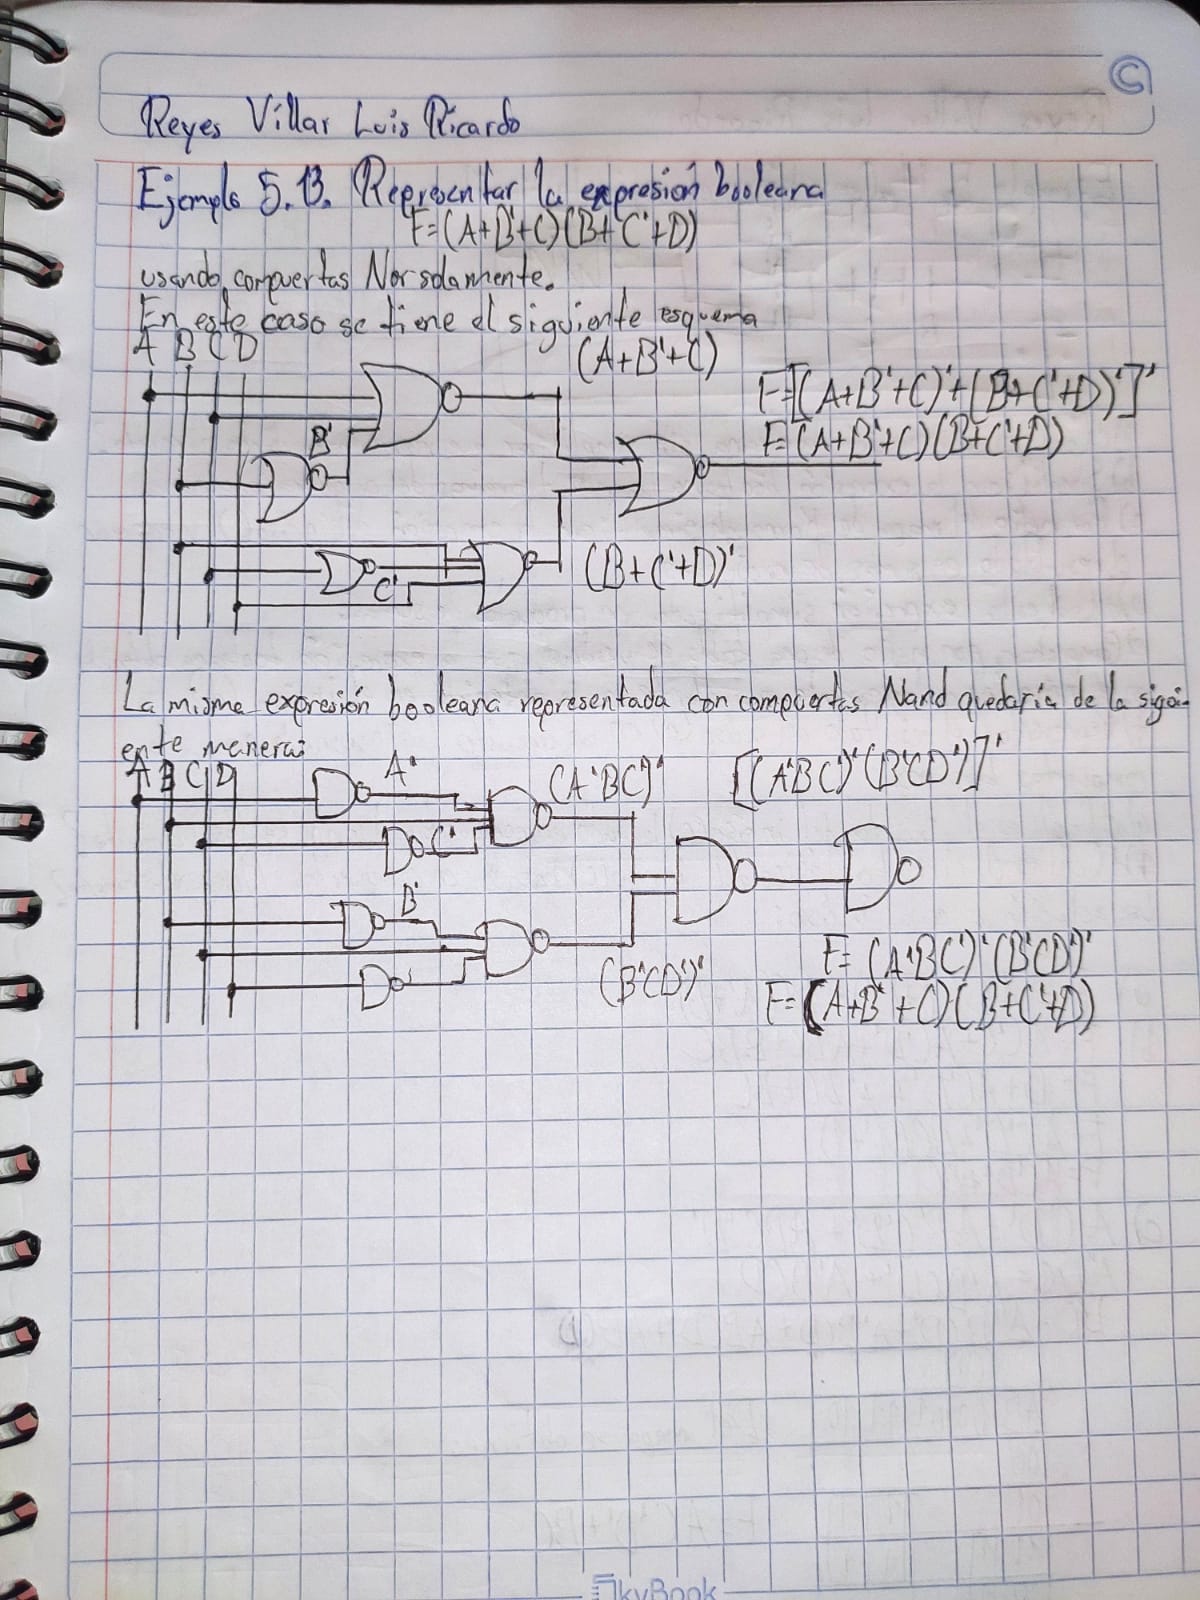 Reyes Villar Luis Ricardo
Ejemplo 5.13. Representar la expresión booleana
F=(A+B'+C)(B+C'+D)
usando compuertas Nor solamente.
En este caso se tiene el siguiente esquema
A B C D
(A+B'+C)
F=[(A+B'+C)'+(B+C'+D)']'
F=(A+B'+C)(B+C'+D)
B'
C'
(B+C'+D)'
La misma expresión booleana representada con compuertas Nand quedaría de la sigui-
ente manera:
A B C D
A'
(A'BC')'
[(A'BC')'(B'CD')']'
C'
B'
(B'CD')'
F=(A'BC')'(B'CD')'
F=(A+B'+C)(B+C'+D)
SkyBook